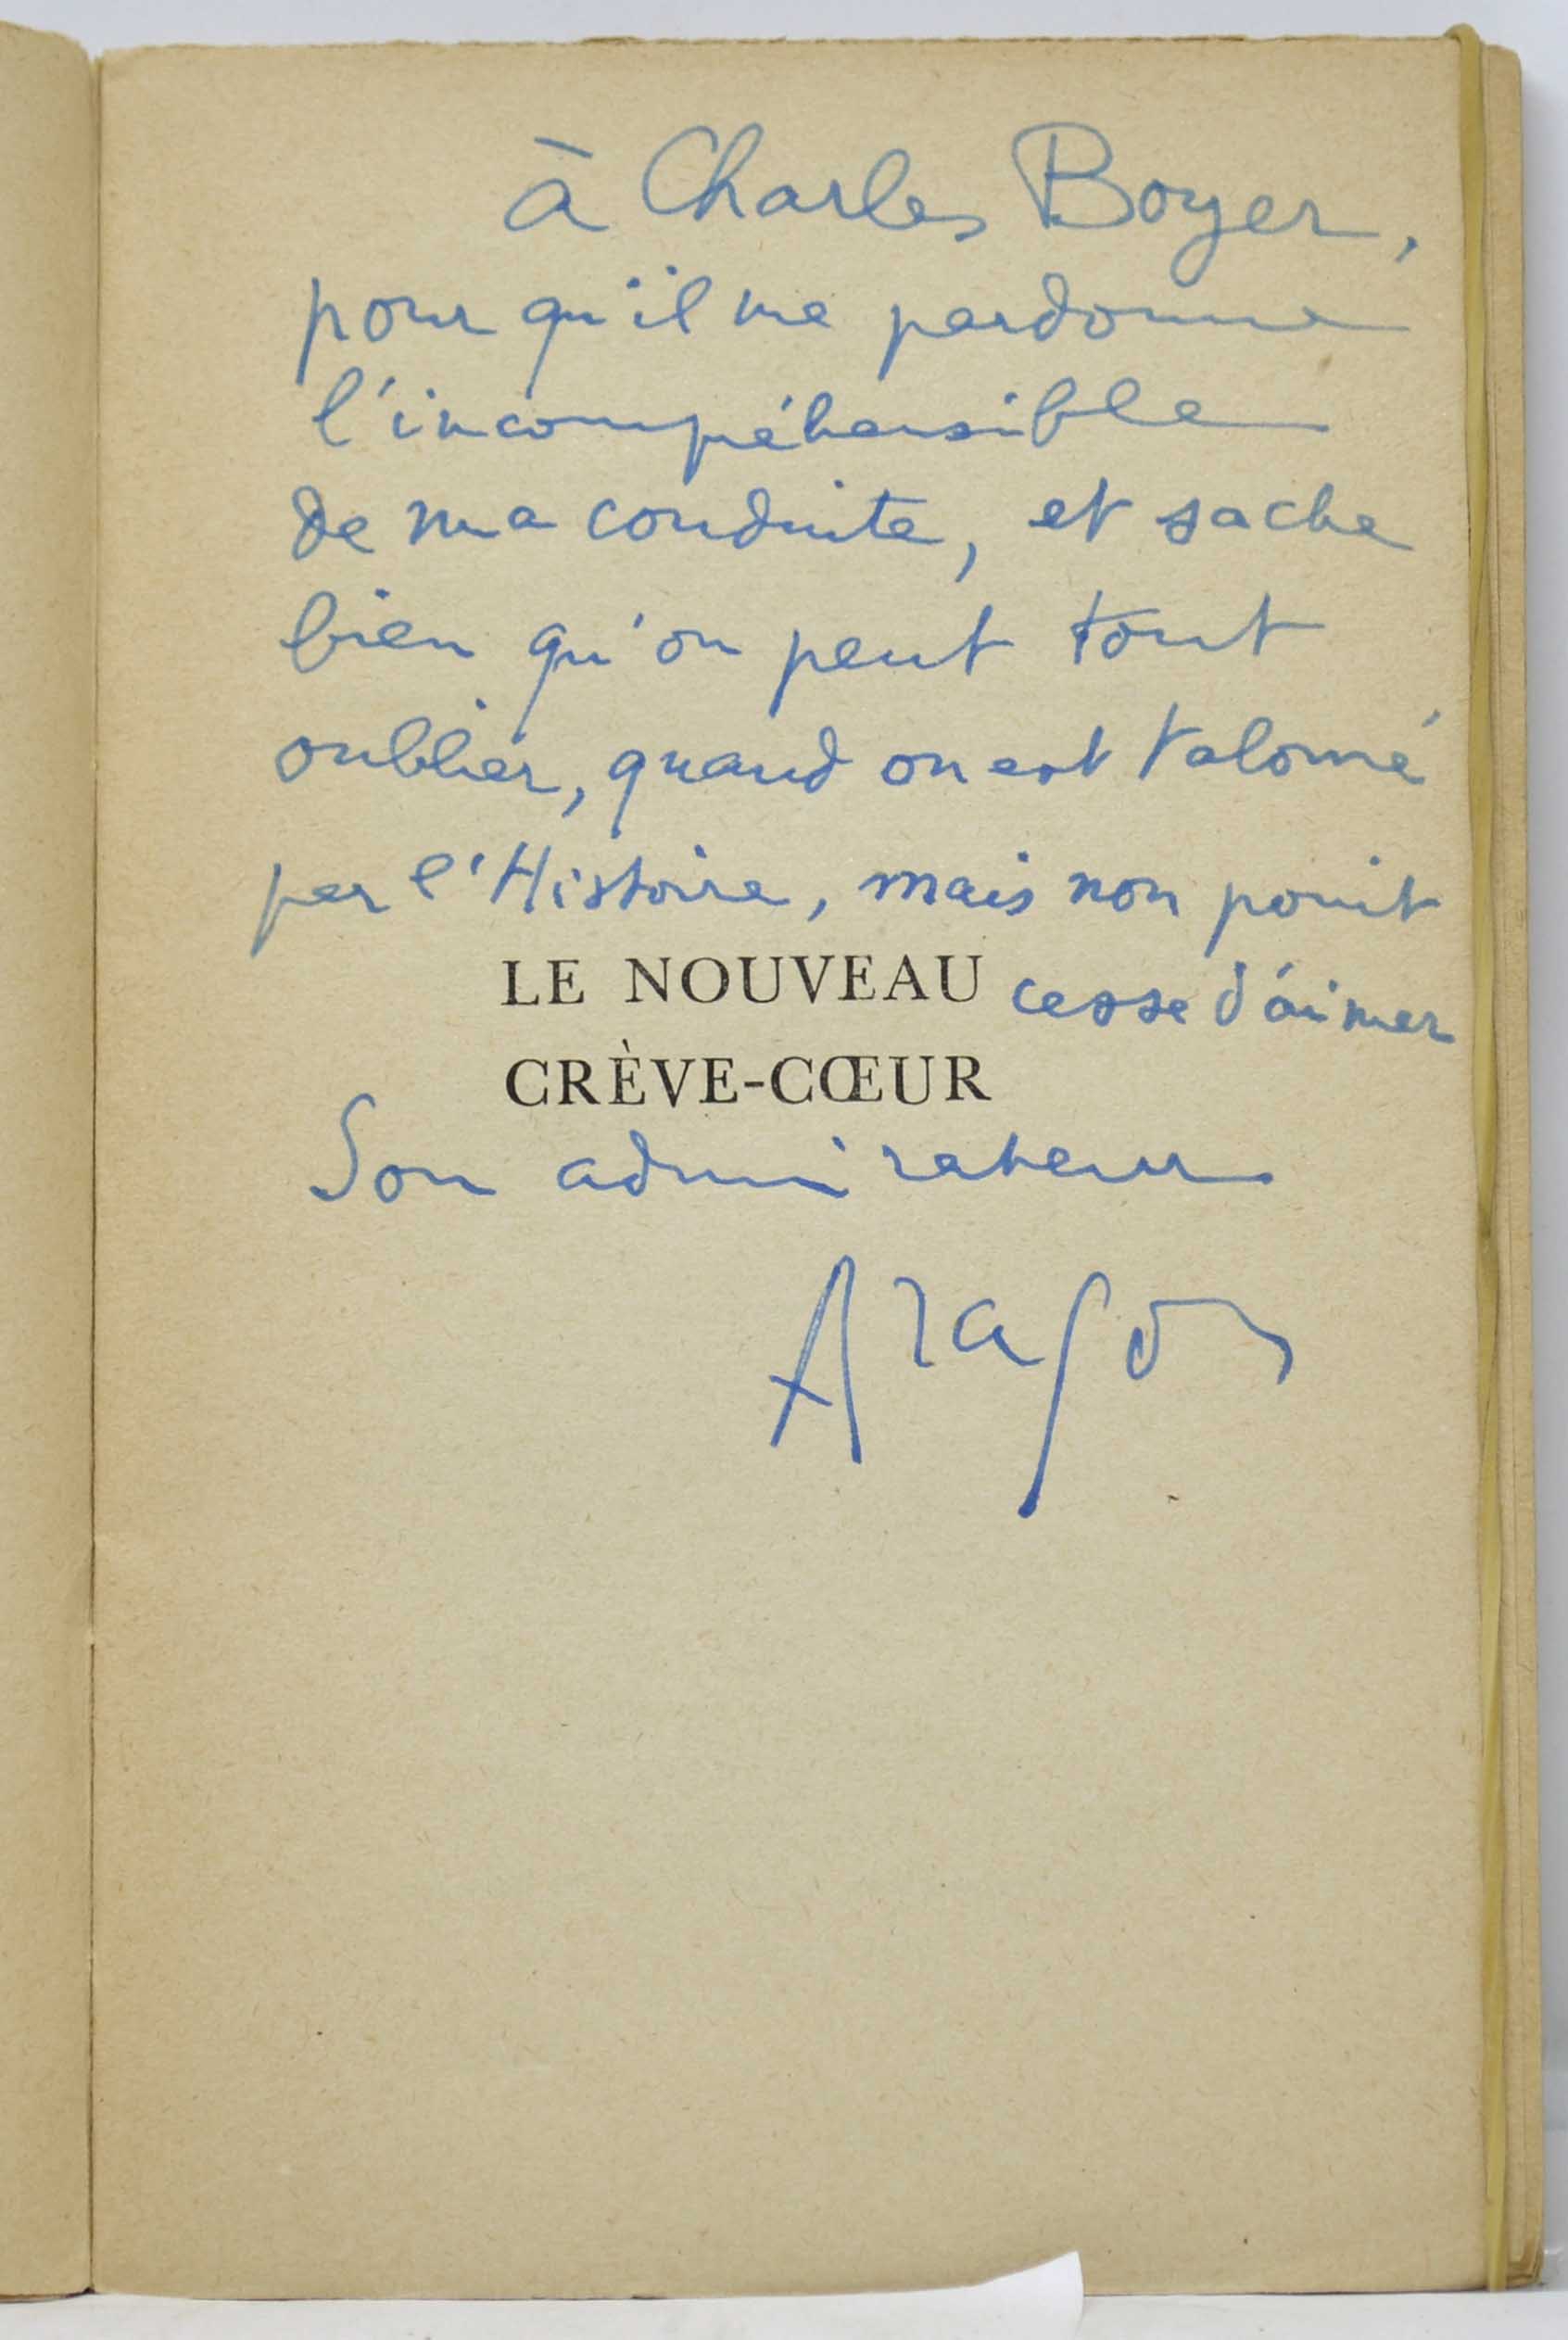 à Charles Boyer,
pour qu'il me pardonne
l'incompréhensible
de ma conduite, et sache
bien qu'on peut tout
oublier, quand on est talonné
par l'Histoire, mais non point
LE NOUVEAU cesse d'aimer
CRÈVE-CŒUR
Son admirateur
Aragon